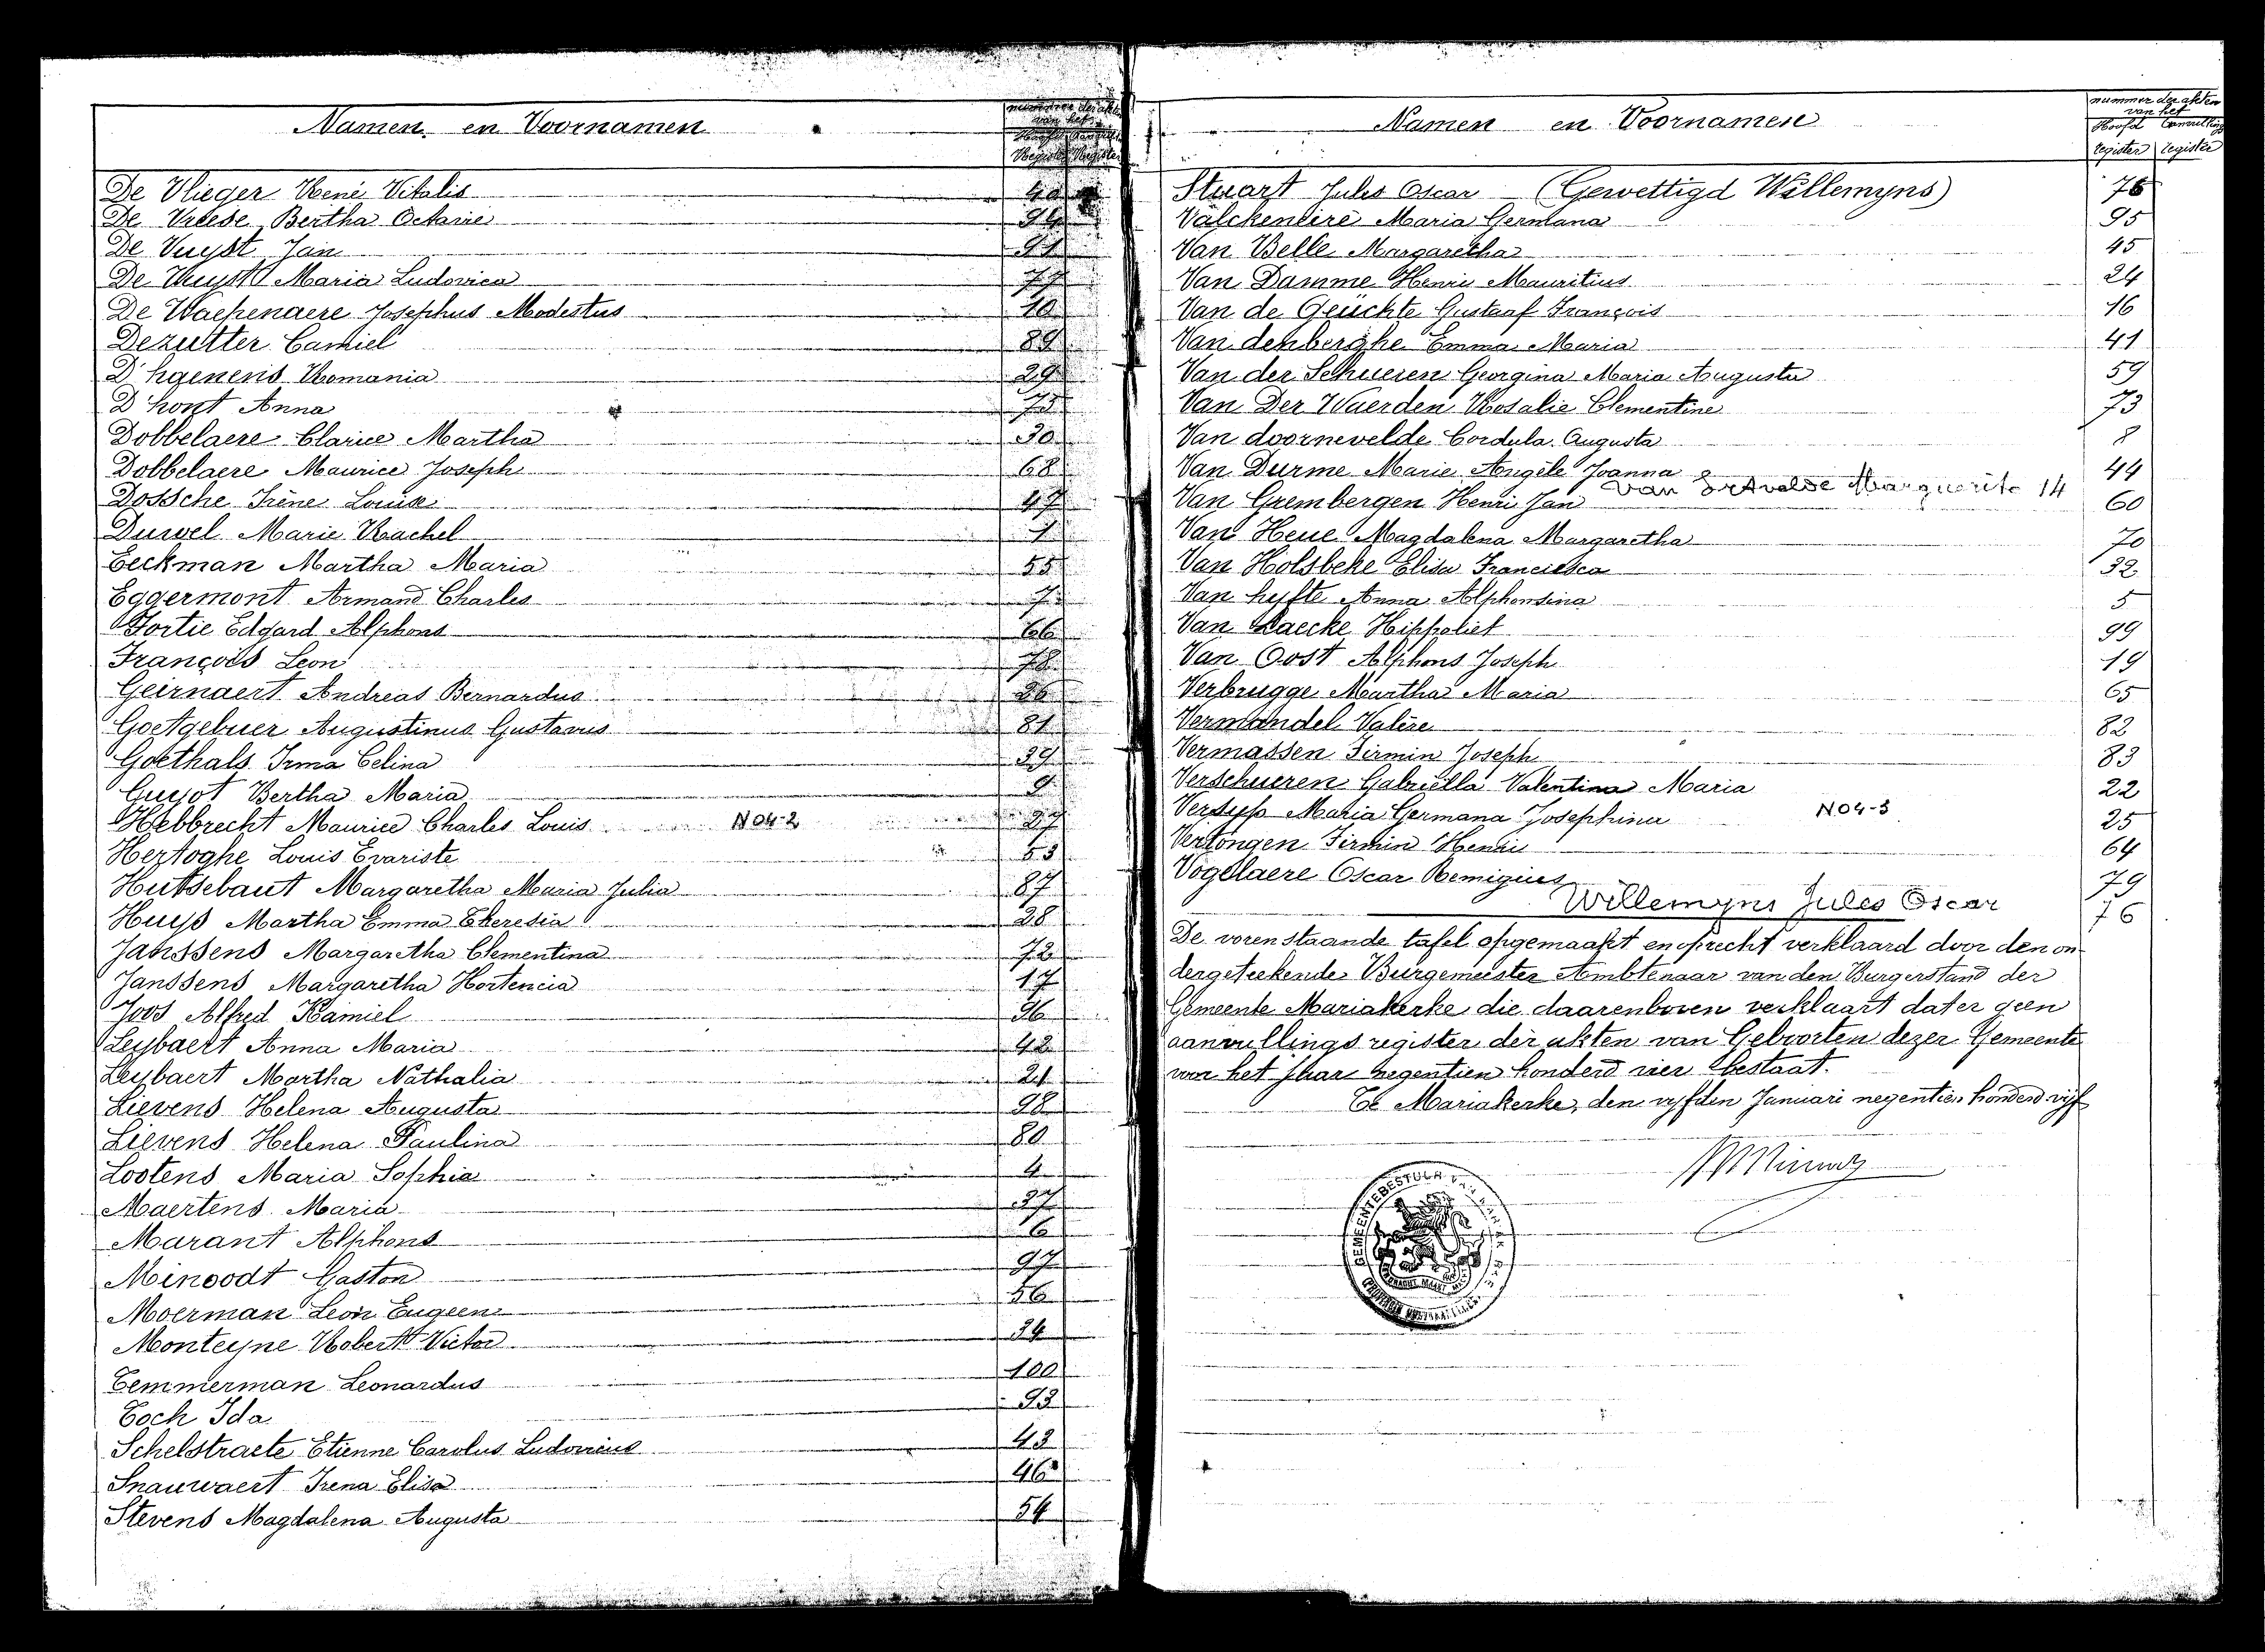 Namen en Voornamen
De Vlieger René Vitalis
De Vreese Bertha Octavie
De Vuyst Jan
De Vuyst Maria Ludovica 77
De Waepenaere Josephus Modestus 10
Dezutter Camiel 89
D'hgenens Romania 29
D'hont Anna 75
Dobbelaere Clarice Martha 30
Dobbelaere Maurice Joseph 68
Dossche Irène Louise 47
Duivel Marie Rachel 1
Eeckman Martha Maria 55
Eggermont Armand Charles 7
Fortie Edgard Alphons 66
François Leon 78
Geirnaert Andreas Bernardus 86
Goetgebuer Augustinus Gustavus 81
Goethals Irma Celina 39
Guyot Bertha Maria 9
Hebbrecht Maurice Charles Louis N04-2 27
Hertoghe Louis Evariste 53
Hutsebaut Margaretha Maria Julia 87
Huys Martha Emma Theresia 28
Janssens Margaretha Clementina 72
Janssens Margaretha Hortencia 17
Joos Alfred Kamiel 96
Leybaert Anna Maria 42
Leybaert Martha Nathalia 21
Lievens Helena Augusta 98
Lievens Helena Paulina 80
Lootens Maria Sophia 4
Maertens Maria 37
Marant Alphons 6
Minoodt Gaston 97
Moerman Leon Eugeen 56
Monteyne Robert Victor 34
Temmerman Leonardus 100
Toch Ida 93
Schelstraete Etienne Carolus Ludovicus 43
Snauwaert Irena Elisa 46
Stevens Magdalena Augusta 54
Namen en Voornamen
nummer der akten
van het
Hoofd Aanvulling
register register
Stuart Jules Oscar (Gewettigd Willemyns) 76
Valckeneire Maria Germana 95
Van Belle Margaretha 45
Van Damme Henri Mauritius 24
Van de Geuchte Gustaaf François 16
Van denberghe Emma Maria 41
Van der Schueren Georgina Maria Augusta 59
Van Der Waerden Rosalie Clementine 73
Van doornevelde Cordula Augusta 8
Van Durme Marie Angèle Joanna 44
Van Ertvelde Marguerite 14
Van Grembergen Henri Jan 60
Van Heue Magdalena Margaretha 70
Van Holsbeke Elisa Francisca 32
Van hyfte Anna Alphonsina 5
Van Laecke Hippoliet 99
Van Oost Alphons Joseph 19
Verbrugge Martha Maria 65
Vermandel Valère 82
Vermassen Firmin Joseph 83
Verschueren Gabriella Valentina Maria 22
Versyp Maria Germana Josephina N04-3 25
Vertongen Firmin Henri 64
Vogelaere Oscar Remigius 79
Willemyns Jules Oscar 76
De vorenstaande tafel opgemaakt en oprecht verklaard door den on-
dergeteekende Burgemeester Ambtenaar van den Burgerstand der
Gemeente Mariakerke die daarenboven verklaart dat er geen
aanvullings register der akten van Geboorten dezer Gemeente
voor het jaar negentien honderd vier bestaat.
Te Mariakerke, den vyfden Januari negentien honderd vijf
GEMEENTEBESTUUR